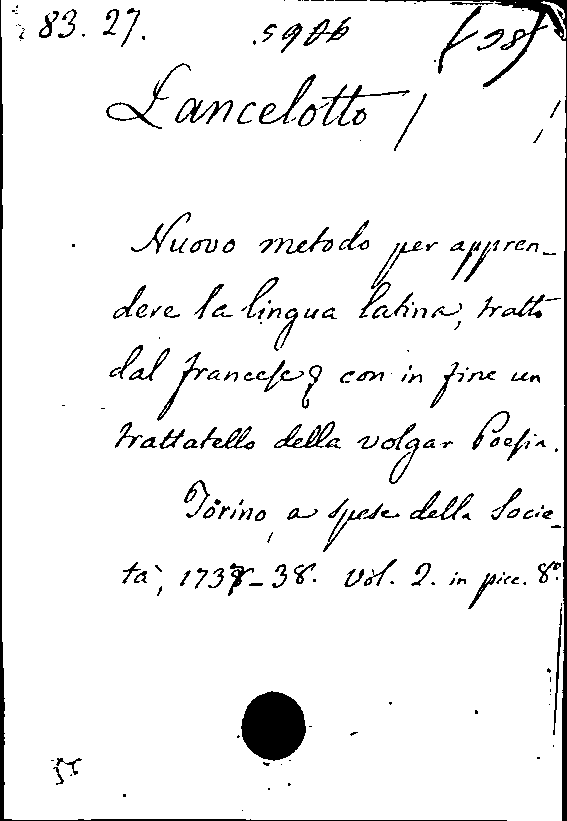 83. 27.
Lancelotto
Nuovo metodo per appren-
dere la lingua latina, tratto
dal francese con in fine un
trattatello della volgar Poesia.
Torino, a spese della Socie-
tà, 1737-38. Vol. 2. in picc. 8º.